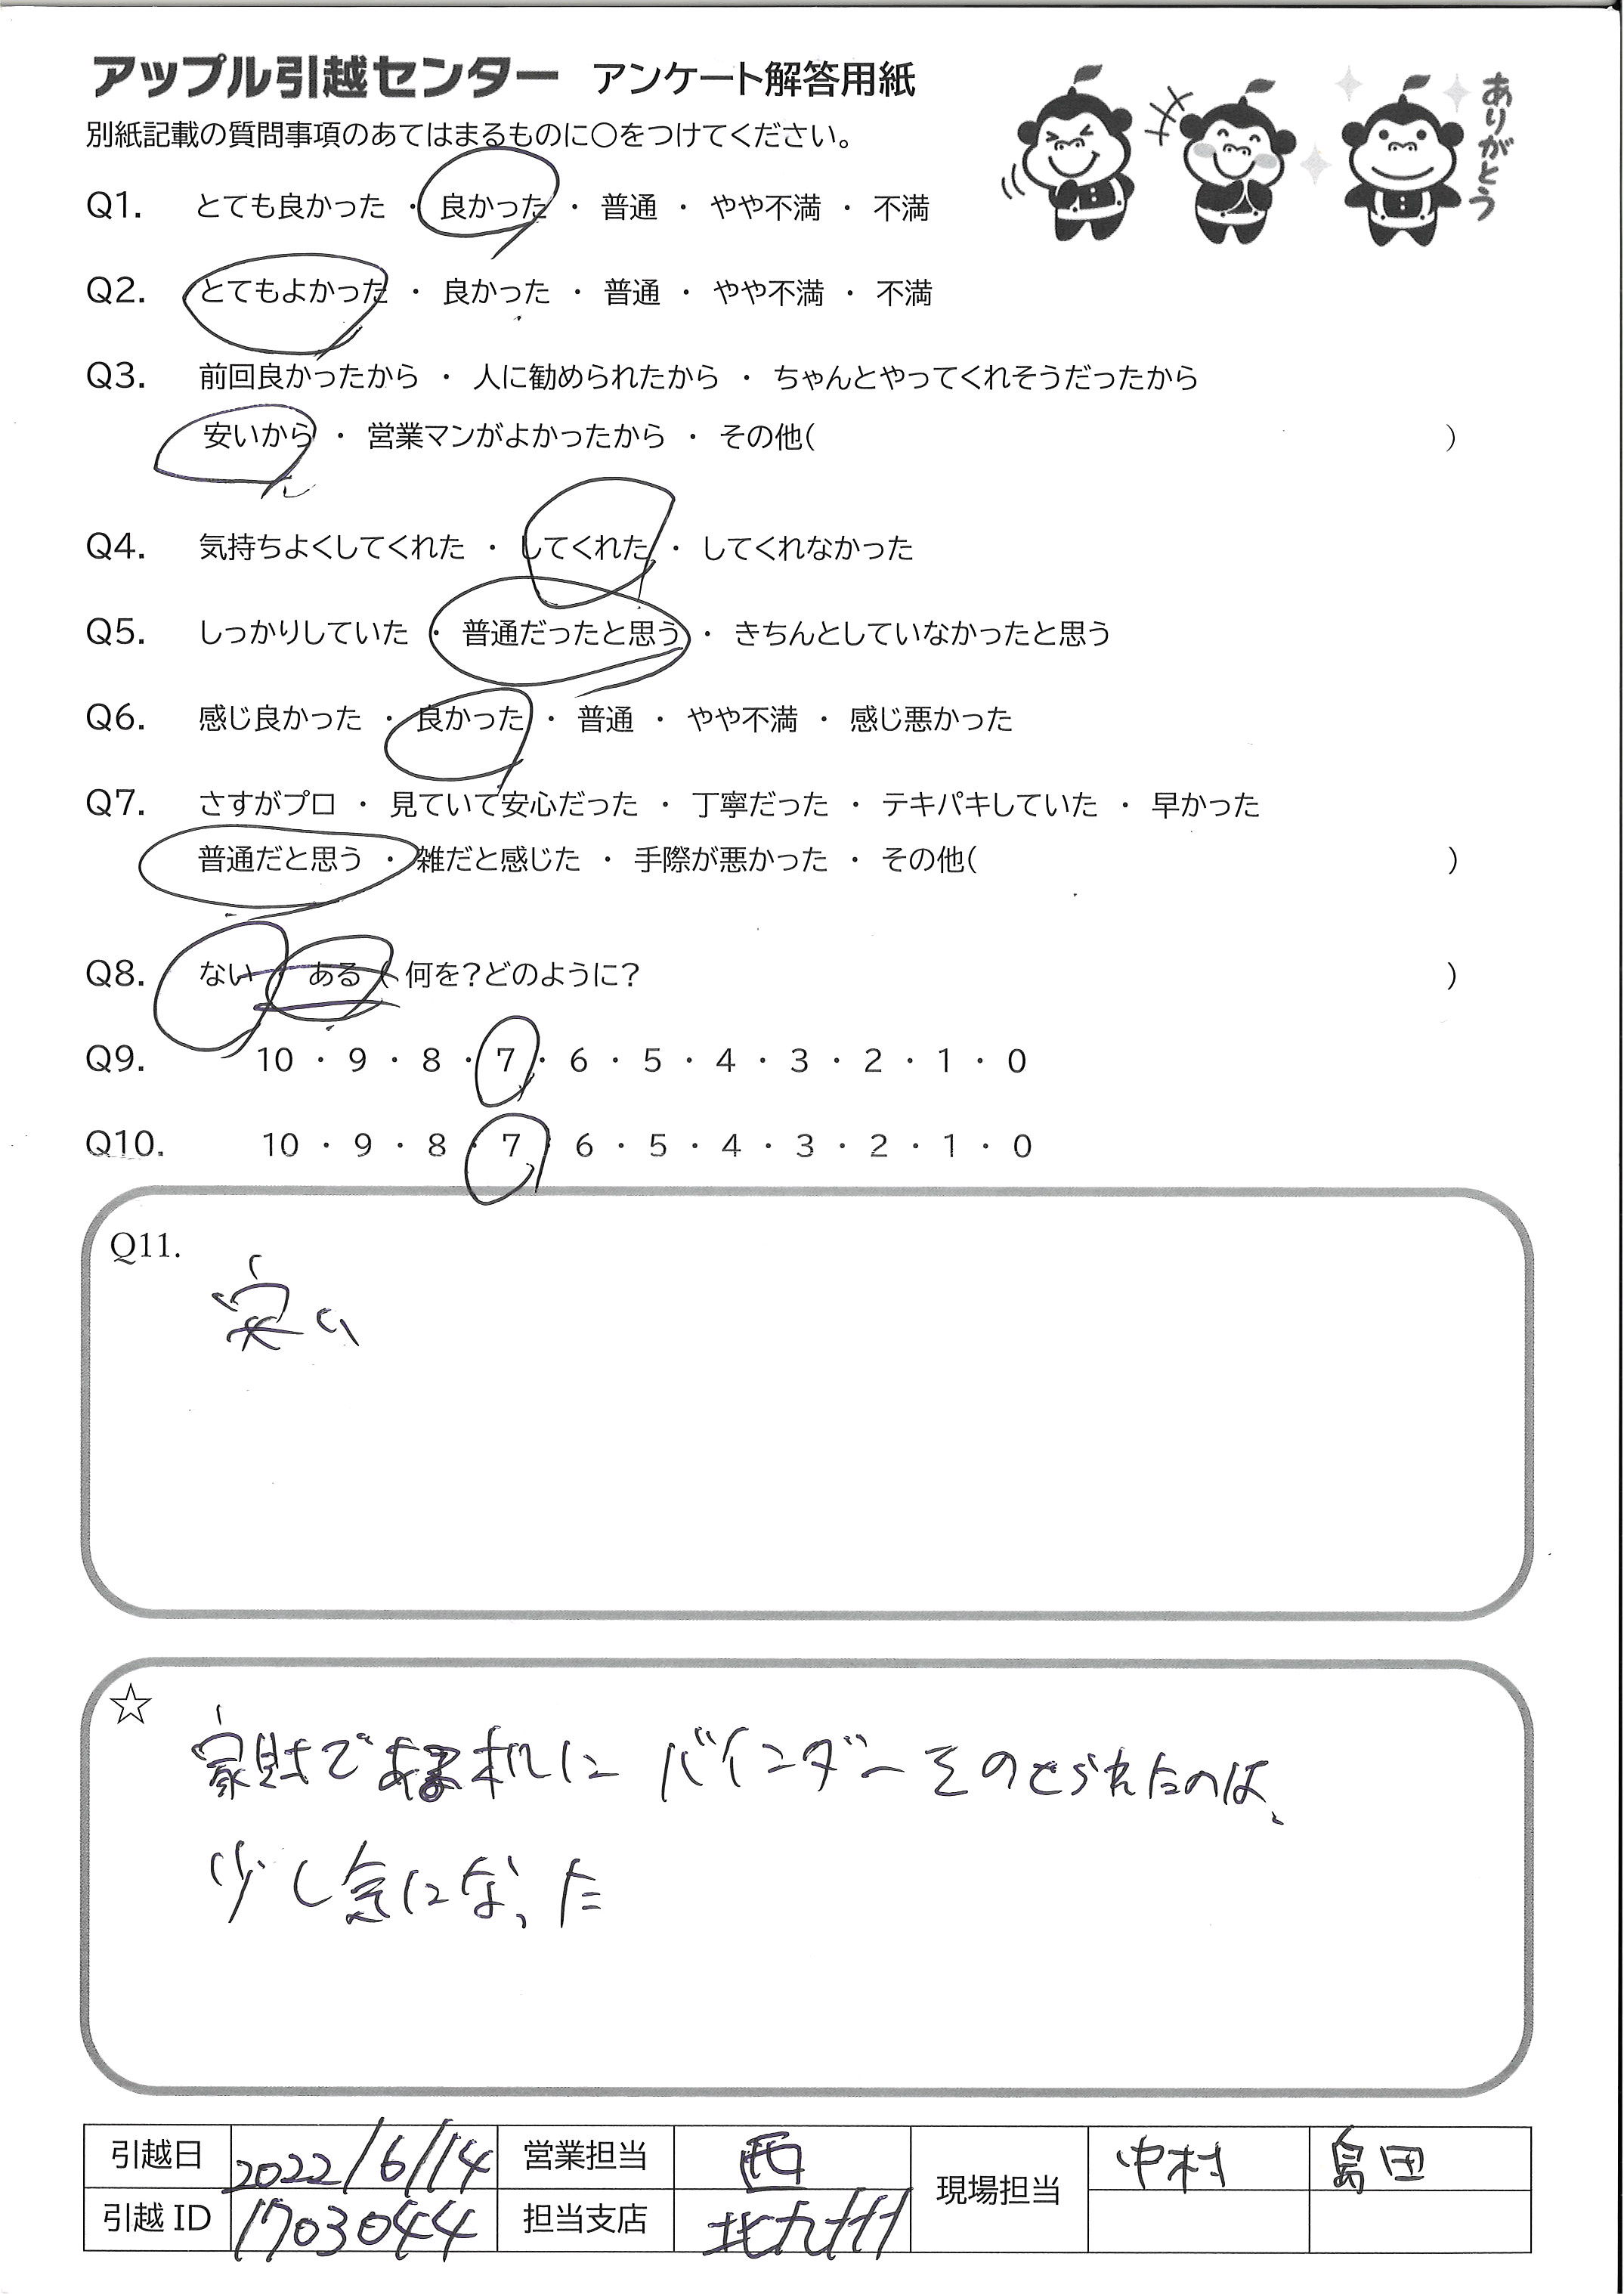 アップル引越センター アンケート解答用紙
別紙記載の質問事項のあてはまるものに○をつけてください。
ありがとう
Q1. とても良かった ・ 良かった ・ 普通 ・ やや不満 ・ 不満
Q2. とてもよかった ・ 良かった ・ 普通 ・ やや不満 ・ 不満
Q3. 前回良かったから ・ 人に勧められたから ・ ちゃんとやってくれそうだったから
安いから ・ 営業マンがよかったから ・ その他( )
Q4. 気持ちよくしてくれた ・ してくれた ・ してくれなかった
Q5. しっかりしていた ・ 普通だったと思う ・ きちんとしていなかったと思う
Q6. 感じ良かった ・ 良かった ・ 普通 ・ やや不満 ・ 感じ悪かった
Q7. さすがプロ ・ 見ていて安心だった ・ 丁寧だった ・ テキパキしていた ・ 早かった
普通だと思う ・ 雑だと感じた ・ 手際が悪かった ・ その他( )
Q8. ない ・ ある ( 何を?どのように? )
Q9. 10 ・ 9 ・ 8 ・ 7 ・ 6 ・ 5 ・ 4 ・ 3 ・ 2 ・ 1 ・ 0
Q10. 10 ・ 9 ・ 8 ・ 7 ・ 6 ・ 5 ・ 4 ・ 3 ・ 2 ・ 1 ・ 0
Q11.
安い
☆
家財である机にバインダーをのせられたのは、
少し気になった
引越日 2022/6/14 営業担当 西 現場担当 中村 島田
引越 ID 1703044 担当支店 北九州